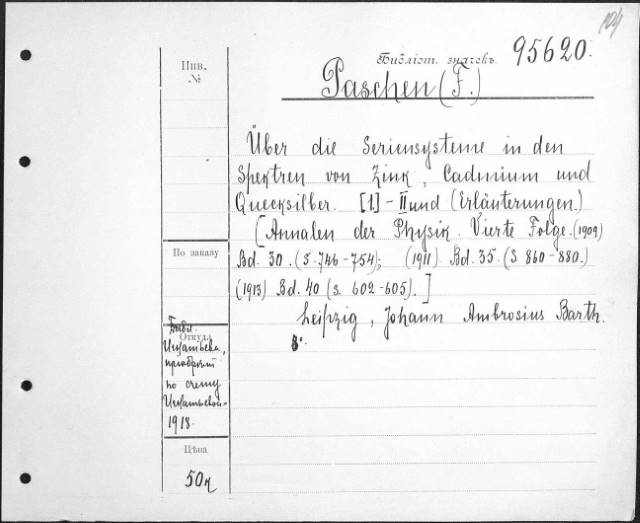 104
Библіот. значекъ 95620.
Инв. №
Paschen (F.)
Über die Seriensysteme in den
Spektren von Zink, Cadmium und
Quecksilber. [1] - II und (Erläuterungen.)
[Annalen der Physik. Vierte Folge. (1909)
Bd. 30. (S. 746-754); (1911) Bd. 35. (S 860-880.)
(1913) Bd. 40 (S. 602-605).]
Leipzig, Johann Ambrosius Barth.
8°.
По заказу
Откуда
Библ.
Игнатьева,
приобрет
по счету
Игнатьевой
1918.
Цѣна
50к